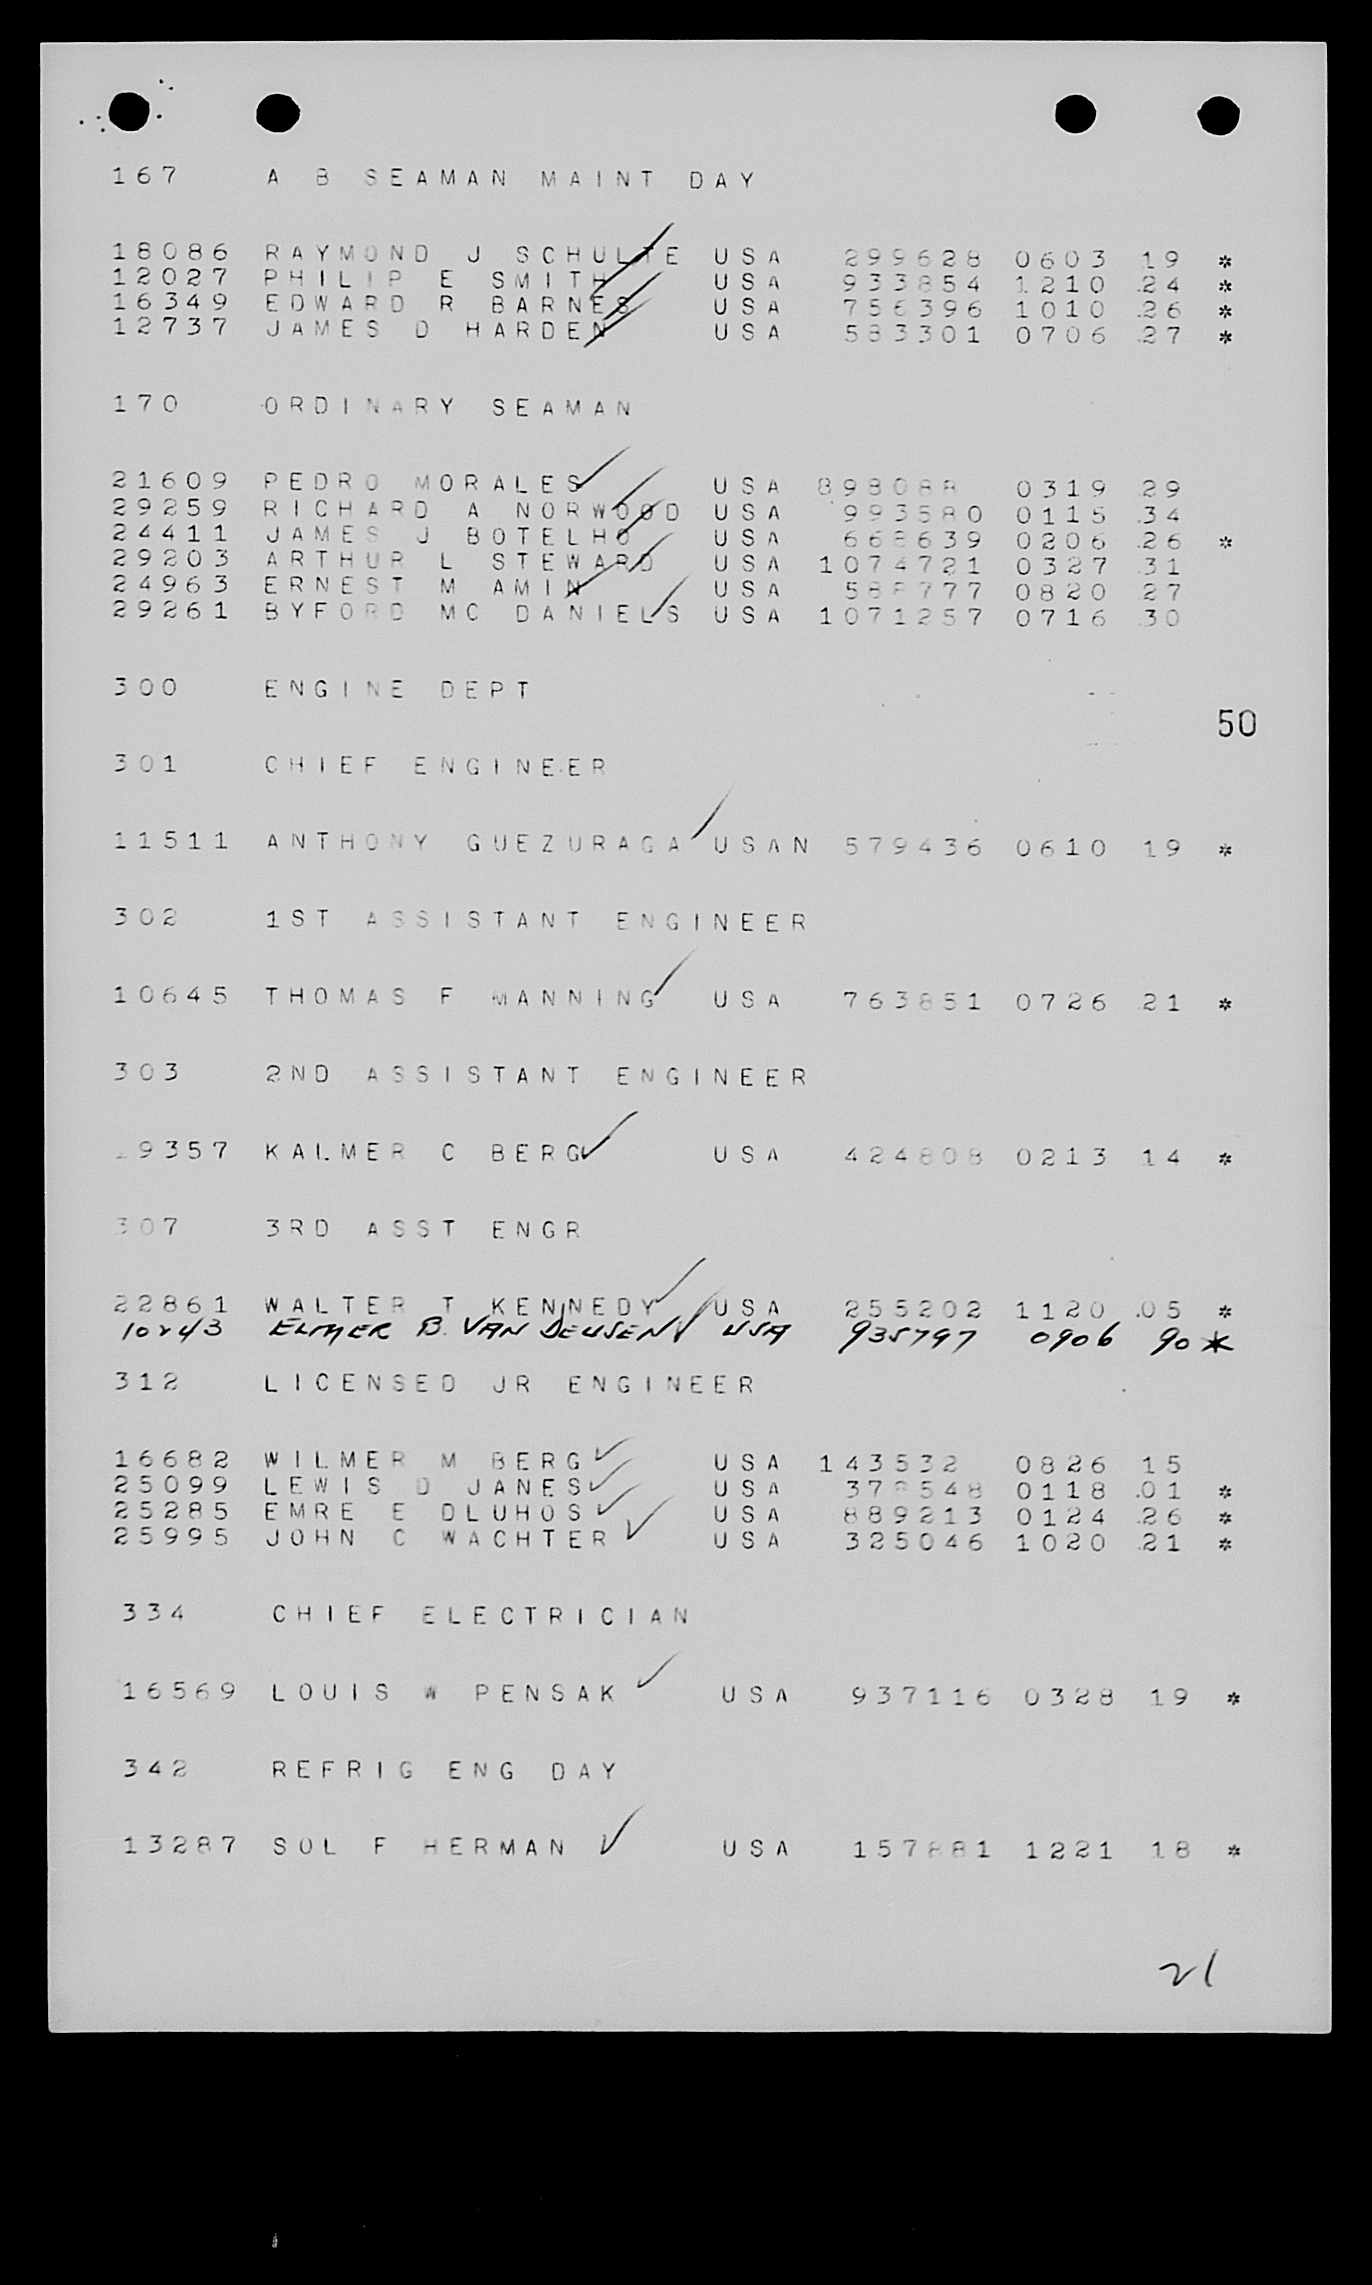 167 A B SEAMAN MAINT DAY
18086 RAYMOND J SCHULTE USA 299628 0603 19 *
12027 PHILIP E SMITH USA 933854 1210 24 *
16349 EDWARD R BARNES USA 756396 1010 26 *
12737 JAMES D HARDEN USA 583301 0706 27 *
170 ORDINARY SEAMAN
21609 PEDRO MORALES USA 898088 0319 29
29259 RICHARD A NORWOOD USA 993580 0115 34
24411 JAMES J BOTELHO USA 668639 0206 26 *
29203 ARTHUR L STEWARD USA 1074721 0327 31
24963 ERNEST M AMIN USA 0820 27
29261 BYFORD MC DANIELS USA 1071257 0716 30
300 ENGINE DEPT
50
301 CHIEF ENGINEER
11511 ANTHONY GUEZURAGA USAN 579436 0610 19 *
302 1ST ASSISTANT ENGINEER
10645 THOMAS F MANNING USA 763851 0726 21 *
303 2ND ASSISTANT ENGINEER
9357 KALMER C BERG USA 424808 0213 14 *
307 3RD ASST ENGR
22861 WALTER T KENNEDY USA 255202 1120 05 *
10243 ELMER B. VAN DEUSEN USA 935797 0906 90 *
312 LICENSED JR ENGINEER
16682 WILMER M BERG USA 143532 0826 15
25099 LEWIS D JANES USA 0118 01 *
25285 EMRE E DLUHOS USA 889213 0124 26 *
25995 JOHN C WACHTER USA 325046 1020 21 *
334 CHIEF ELECTRICIAN
16569 LOUIS W PENSAK USA 937116 0328 19 *
342 REFRIG ENG DAY
13287 SOL F HERMAN USA 157881 1221 18 *
21